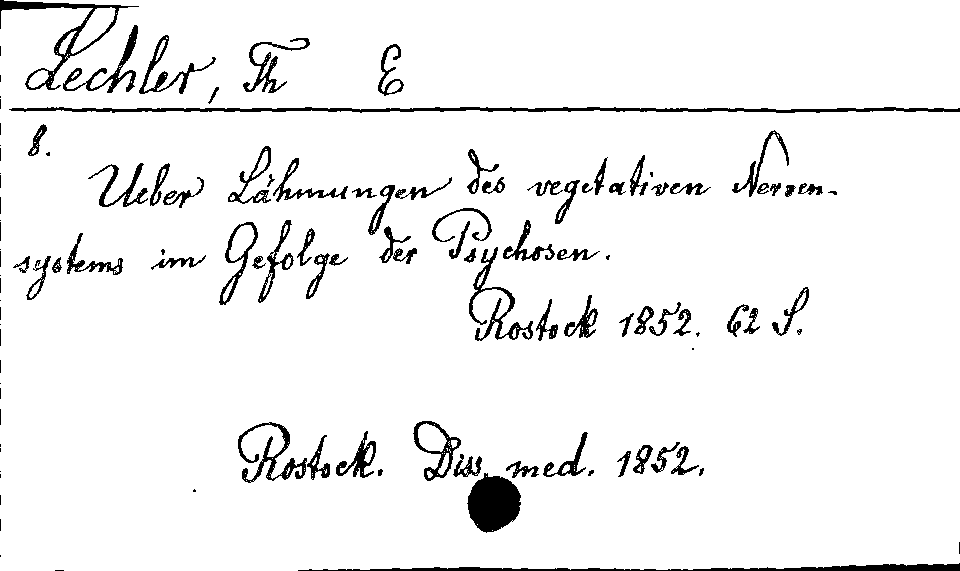 Lechler, Th E
8.
Ueber Lähmungen des vegetativen Nerven-
systems im Gefolge der Psychosen.
Rostock 1852. 62 S.
Rostock. Diss. med. 1852.